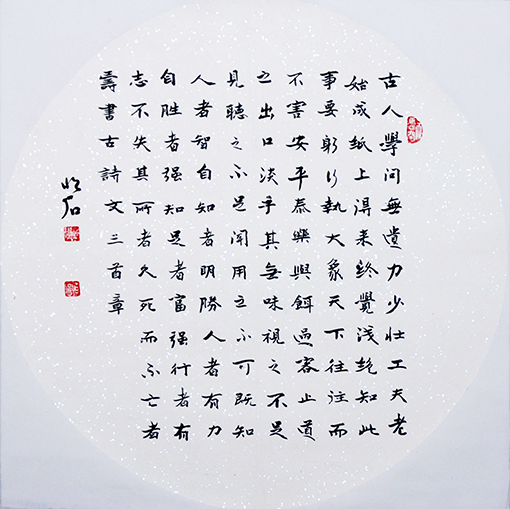 古人學問無遺力少壯工夫老
始成紙上得来終覺淺絶知此
事要躬行執大象天下往往而
不害安平泰樂與餌過客止道
之出口淡乎其無味視之不足
見聽之不足聞用之不可既知
人者智自知者明勝人者有力
自胜者强知足者富强行者有
志不失其所者久死而不亡者
壽書古詩文三首章
石